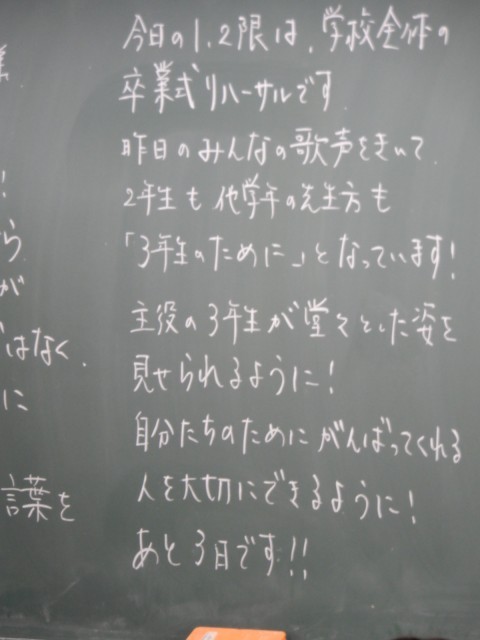 今日の1,2限は、学校全体の
卒業式リハーサルです
昨日のみんなの歌声をきいて、
2年生も他学年の先生方も
「3年生のために」となっています!
主役の3年生が堂々とした姿を
見せられるように!
自分たちのためにがんばってくれる
人を大切にできるように!
あと3日です!!
!
ら
が
はなく、
に
言葉を